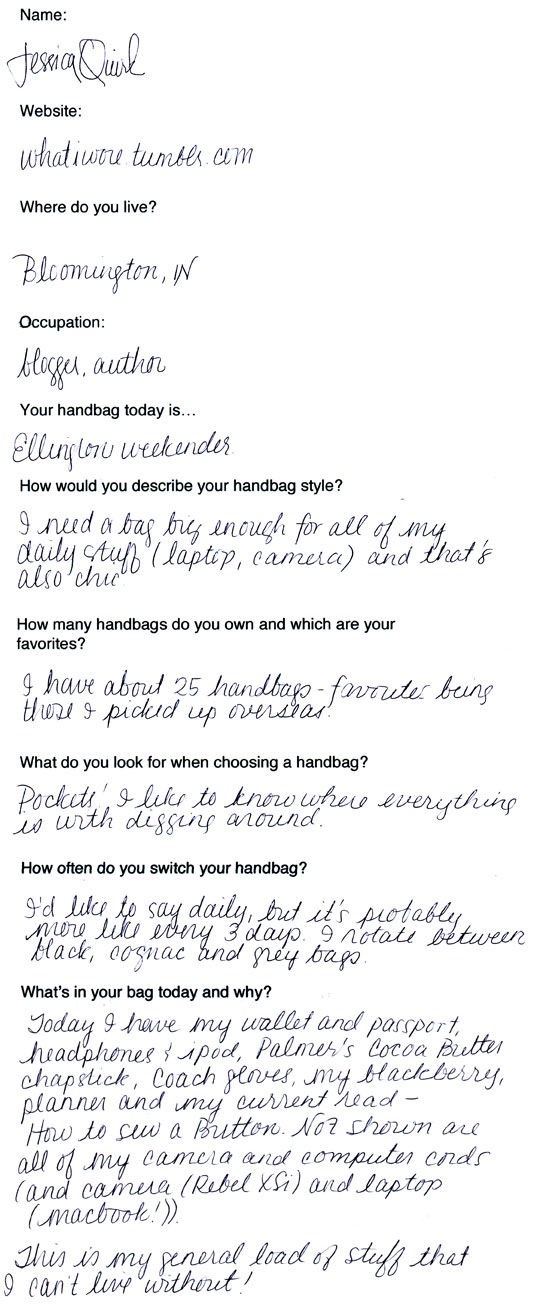 Name:
Jessica Quirk
Website:
whatiwore.tumblr.com
Where do you live?
Bloomington, IN
Occupation:
blogger, author
Your handbag today is…
Ellington weekender
How would you describe your handbag style?
I need a bag big enough for all of my
daily stuff (laptop, camera) and that's
also chic.
How many handbags do you own and which are your
favorites?
I have about 25 handbags - favorites being
those I picked up overseas.
What do you look for when choosing a handbag?
Pockets! I like to know where everything
is with digging around.
How often do you switch your handbag?
I'd like to say daily, but it's probably
more like every 3 days. I rotate between
black, cognac and grey bags.
What's in your bag today and why?
Today I have my wallet and passport,
headphones & ipod, Palmer's Cocoa Butter
chapstick, Coach gloves, my blackberry,
planner and my current read –
How to sew a Button. Not shown are
all of my camera and computer cords
(and camera (Rebel XSi) and laptop
(macbook!)).
This is my general load of stuff that
I can't live without!